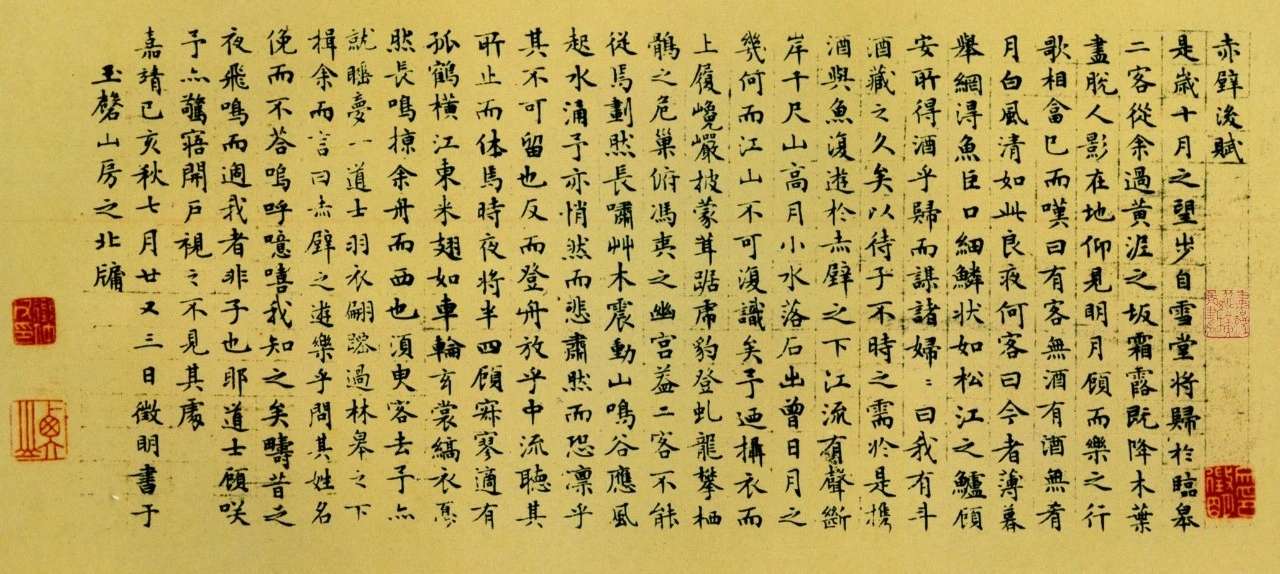 赤壁後賦
是歲十月之望步自雪堂將歸於臨皋
二客從余過黃泥之坂霜露既降木葉
盡脫人影在地仰見明月顧而樂之行
歌相答已而嘆曰有客無酒有酒無肴
月白風清如此良夜何客曰今者薄暮
舉網得魚巨口細鱗狀如松江之鱸顧
安所得酒乎歸而謀諸婦〻曰我有斗
酒藏之久矣以待子不時之需於是攜
酒與魚復遊於赤壁之下江流有聲斷
岸千尺山高月小水落石出曾日月之
幾何而江山不可復識矣予迺攝衣而
上履巉巖披蒙茸踞虎豹登虬龍攀栖
鶻之危巢俯馮夷之幽宮蓋二客不能
從焉劃然長嘯艸木震動山鳴谷應風
起水涌予亦悄然而悲肅然而恐凛乎
其不可留也反而登舟放乎中流聽其
所止而休焉時夜將半四顧寂寥適有
孤鶴橫江東來翅如車輪玄裳縞衣戛
然長鳴掠余舟而西也須臾客去予亦
就睡夢一道士羽衣翩躚過林皋之下
揖余而言曰赤壁之遊樂乎問其姓名
俛而不答嗚呼噫嘻我知之矣疇昔之
夜飛鳴而過我者非子也耶道士顧咲
予亦驚寤開戶視之不見其處
嘉靖己亥秋七月廿又三日徵明書于
玉磬山房之北牖